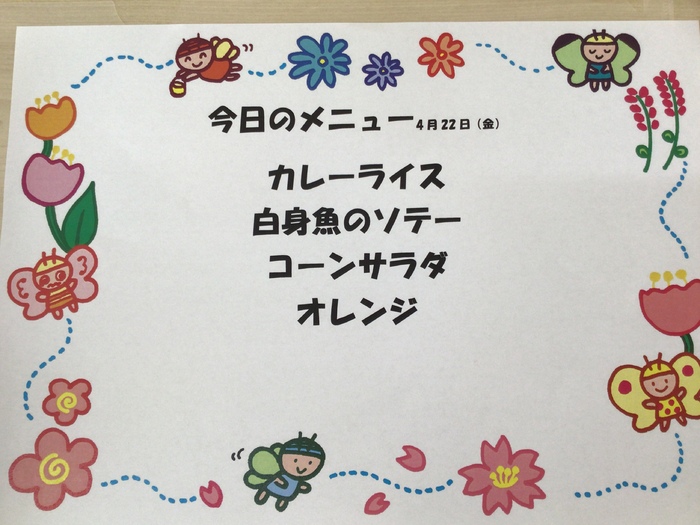 今日のメニュー4月22日（金）
カレーライス
白身魚のソテー
コーンサラダ
オレンジ